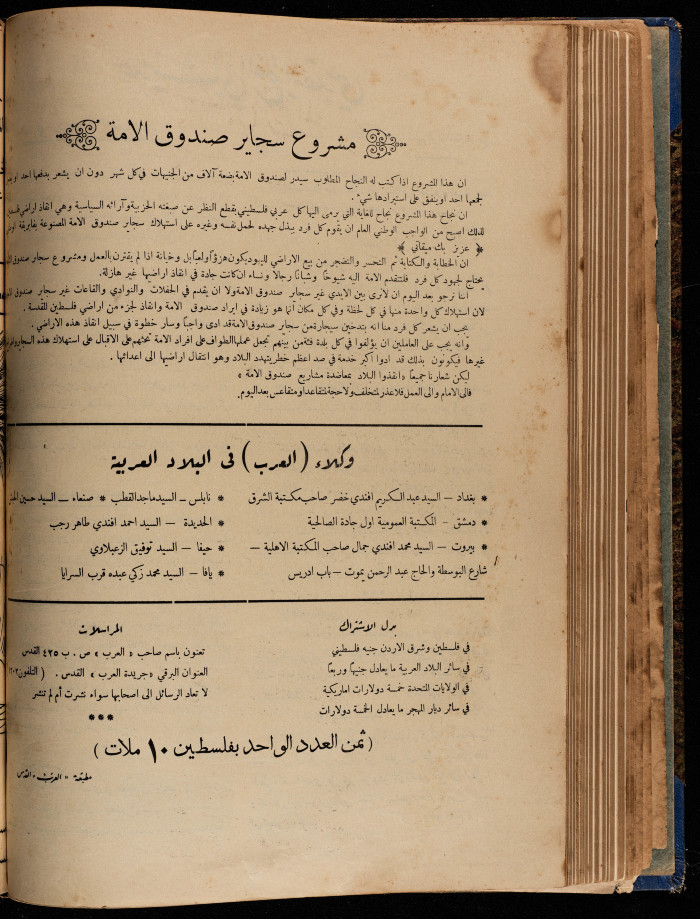 مشروع سجاير صندوق الامة
ان هذا المشروع اذا كتب له النجاح المطلوب سيدر لصندوق الامة بضعة آلاف من الجنيهات في كل شهر دون ان يشعر بدفعها احد او
لجمعها احد او ينفق على استيرادها شيء .
ان نجاح هذا المشروع نجاح للغاية التي يرمى اليها كل عربي فلسطيني بقطع النظر عن صبغته الحزبية وآرائه السياسية وهي انقاذ اراضي
لذلك اصبح من الواجب الوطني العام ان يقوم كل فرد يبذل جهده لحمل نفسه وغيره على استهلاك سجاير صندوق الامة المصنوعة بفابريقة
﴿ عزيز بك ميقاتي ﴾
ان الخطابة والكتابة ثم التحسر والتضجر من بيع الاراضي لليهود يكون هزؤاً ولعباً بل وخيانة اذا لم يقترن بالعمل ومشروع سجاير صندوق
يحتاج لجهود كل فرد فلتتقدم الامة اليه شيوخاً وشباناً رجالا ونساء ان كانت جادة في انقاذ اراضيها غير هازلة.
اننا نرجو بعد اليوم ان لا نرى بين الايدي غير سجاير صندوق الامة ولا ان يقدم في الحفلات والنوادي والقاعات غير سجاير صندوق
لان استهلاك كل واحدة منها في كل لحظة وفي كل مكان انما هو زيادة في ايراد صندوق الامة وانقاذ لجزء من اراضي فلسطين المقدسة .
يجب ان يشعر كل فرد منا انه بتدخين سيجارة من سجاير صندوق الامة قد ادى واجباً وسار خطوة في سبيل انقاذ هذه الاراضي .
وانه يجب على العاملين ان يؤلفوا في كل بلدة فئة من بينهم تجعل عملها الطواف على افراد الامة تحثهم على الاقبال على استهلاك هذه السجاير
غيرها فيكونون بذلك قد ادوا اكبر خدمة في صد اعظم خطر يتهدد البلاد وهو انتقال اراضيها الى اعدائها .
ليكن شعارنا جميعاً «انقذوا البلاد بمعاضدة مشاريع صندوق الامة »
فالى الامام والى العمل فلا عذر لمتخلف ولا حجة لمتقاعد او متقاعس بعد اليوم.
وكلاء ( العرب ) في البلاد العربية
* بغداد — السيد عبد الكريم افندي خضر صاحب مكتبة الشرق
* دمشق - المكتبة العمومية اول جادة الصالحية
* بيروت — السيد محمد افندي جمال صاحب المكتبة الاهلية —
شارع البوسطة والحاج عبد الرحمن يموت — باب ادريس
* نابلس — السيد ماجد القطب * صنعاء — السيد حسين
* الحديدة — السيد احمد افندي طاهر رجب
* حيفا — السيد توفيق الزعبلاوي
* يافا — السيد محمد زكي عبده قرب السرايا
بدل الاشتراك
في فلسطين وشرق الاردن جنيه فلسطيني
في سائر البلاد العربية ما يعادل جنيهاً وربعاً
في الولايات المتحدة خمسة دولارات اماريكية
في سائر ديار المهجر ما يعادل الخمسة دولارات
المراسلات
تعنون باسم صاحب «العرب» ص . ب ٤٢٥ القدس
العنوان البرقي «جريدة العرب» القدس . ( التلفون
لا تعاد الرسائل الى اصحابها سواء نشرت أم لم تنشر
***
( ثمن العدد الواحد بفلسطين ١٠ ملات )
مطبعة « العرب » القدس